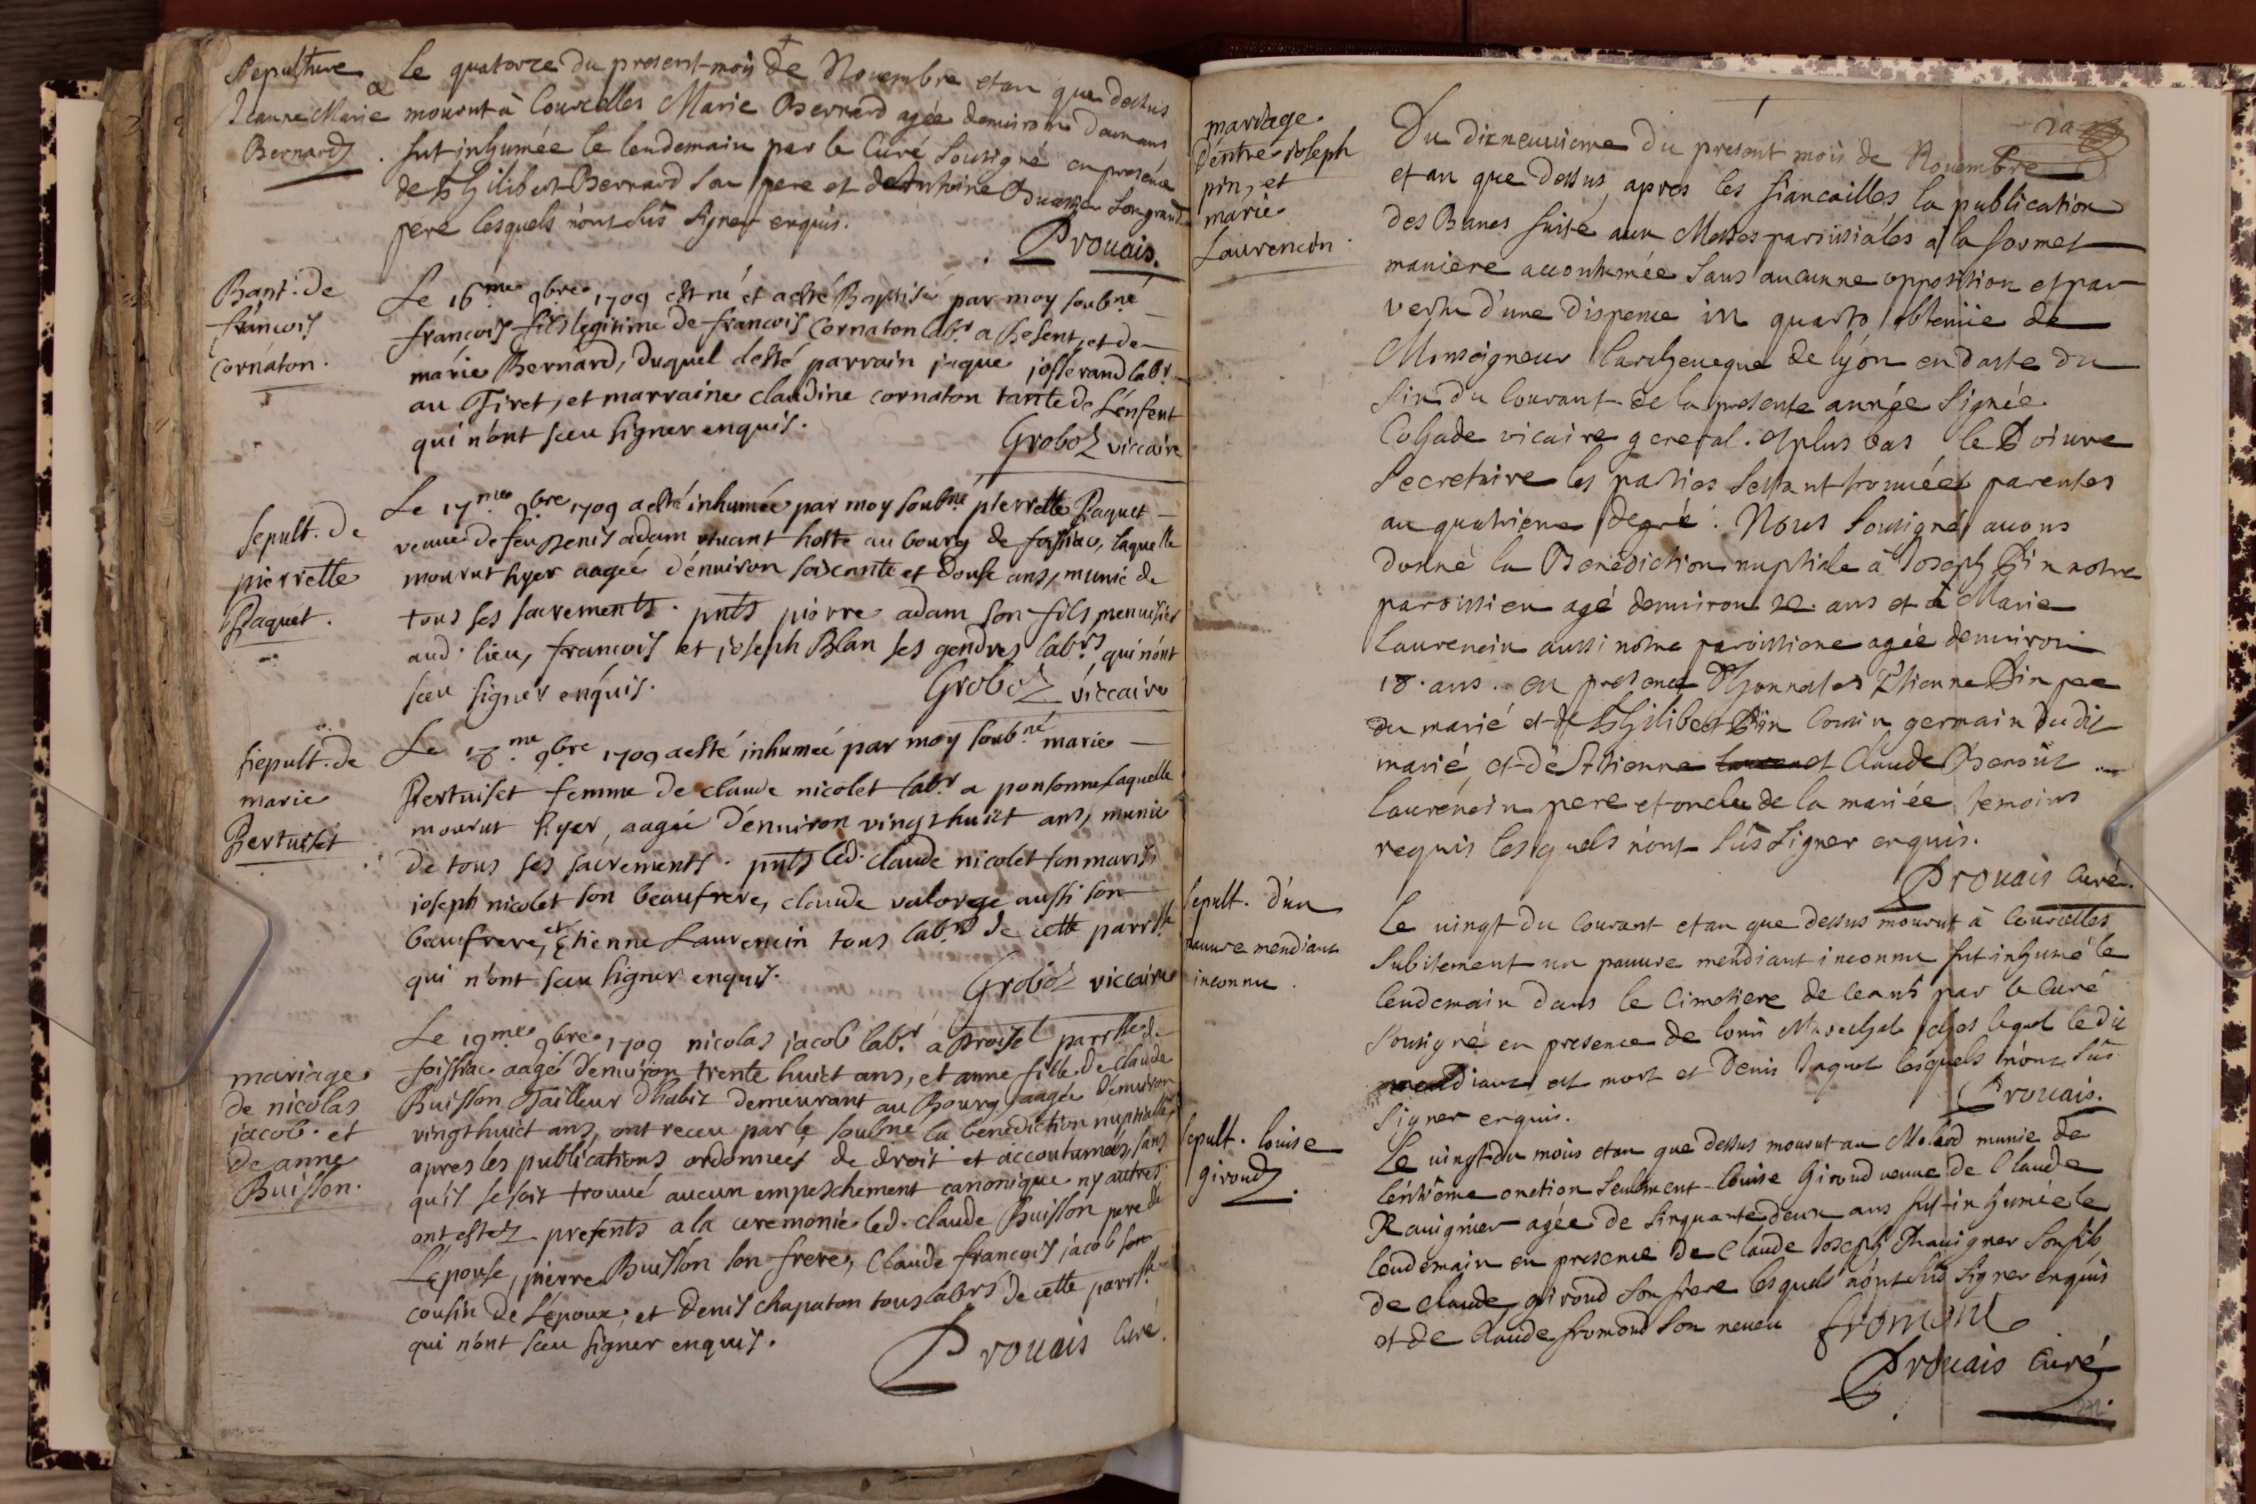 Sepulture
Jeanne Marie
Bernard
Le quatorze du present mois de Novembre et an que dessus
mourut à Courcelles Marie Bernard agée denuiron
fut inhumée le lendemain par le Curé Sousigné en presence
de Philibert Bernard son pere et de Anthoine son grand
pere lesquels n'ont sus signer enquis.
Prouais.
Bapt. de
francois
cornaton.
Le 16me 9bre 1709 est né et a esté Baptisé par moy soubné
francois fils legitime de francois Cornaton labr a et de
márie Bernard, duquel a esté parrain jaque josserand labr
au Tiret, et marraine claudine cornaton tante de L'enfent
qui n'ont sceu signer enquis.
Groboz viccaire
sepult. de
pierrette
Paquet.
Le 17me 9bre 1709 a esté inhumée par moy soubné pierrette Paquet
veuue de feu Denis adam viuant hoste au bourg de foissiac, laquelle
mourut hyer aagée d'enuiron soixcante et douse ans, munie de
tous ses sacrements. pnts pierre adam son fils menuisier
aud. lieu, francois et joseph Blan ses gendres labrs qui n'ont
sceu signer enquis.
Groboz viccaire
sepult. de
marie
Pertuiset
Le 18.me 9bre 1709 a esté inhumeé par moy soubné marie
Pertuiset femme de claude nicolet labr a ponsonne laquelle
mourut hyer, aagée d'enuiron vingt huict ans, munie
de tous ses sacrements. pnts led. claude nicolet son mary
joseph nicolet son beaufrere, claude valorge aussi son
beaufrere, et Etienne Laurencin tous labrs de cette parrsse
qui n'ont sceu signer enquis.
Groboz viccaire
mariage
de nicolas
jacob. et
de anne
Buisson.
Le 19me 9bre 1709 nicolas jacob labr a parrsse de
foissiac aagé d'enuiron trente huict ans, et anne fille de claude
Buisson Tailleur d'habit demeurant au Bourg, aagée d'enuiron
vingt huict ans, ont receu par le soubné la benediction nuptialle,
apres les publications ordonneés de droit et accoutumées, sans
qu'il se soit trouué aucun empeschement canonique ny autres.
ont estez presents a la ceremonie led. claude Buisson pere de
L'epouse, pierre Buisson son frere, Claude francois jacob son
cousin de L'epoux; et denis chapaton tous labrs de cette parrsse
qui n'ont sceu signer enquis.
Prouais Curé.
mariage
D'entre joseph
pin, et
marie
Laurencin.
Du dixneuuieme du present mois de Nouembre
et an que dessus apres les fiancailles la publication
des Bancs faite aux Messes parrissiáles a la forme et
maniere accoutumée sans aucunne opposition et par
vertu d'une dispence in quarto obtenüe de
Monseigneur l'archeueque de lyón en datte du
six du Courant de la presente année signée
Cohade vicaire general. et plus bas le Poiure
Secretaire les parties sestant trouuées parentes
au quatrieme degré. Nous sousigné auons
donné la Benédiction nuptiale à Joseph Pin notre
paroissien agé denuiron 22 ans et à Marie
Laurencin aussi notre paroissiene agée denuiron
18. ans. en presence D'honnestes Etienne Pin pere
du marié et de Philibert Pin cousin germain du dit
marié, et de Etienne et Claude Benoist
Laurencin pere et oncle de la mariée temoins
requis lesquels n'ont sus signer enquis.
Prouais Curé.
Sepult. d'un
pauure mendiant
inconnu.
Le uingt du Courant et an que dessus mourut à Courcelles
subitement un pauure mendiant inconnu fut inhumé le
lendemain dans le Cimetiere de ceans par le Curé
sousigné en presence de Louis Marechal chez lequel le dit
mendiant est mort et Denis lesquels n'ont sus
signer enquis.
Prouais.
Sepult. louise
giroud.
Le uingt du mois et an que dessus mourut au Molard munie de
lextréme onction seulement louise Giroud ueuue de Claude
Rauignier agée de sinquante deux ans fut inhumée le
lendemain en presence de Claude Joseph Rauigner son fils
de Claude giroud son frere lesquels n'ont sus signer enquis
et de Claude fromont son neueu fromont
Prouais Curé